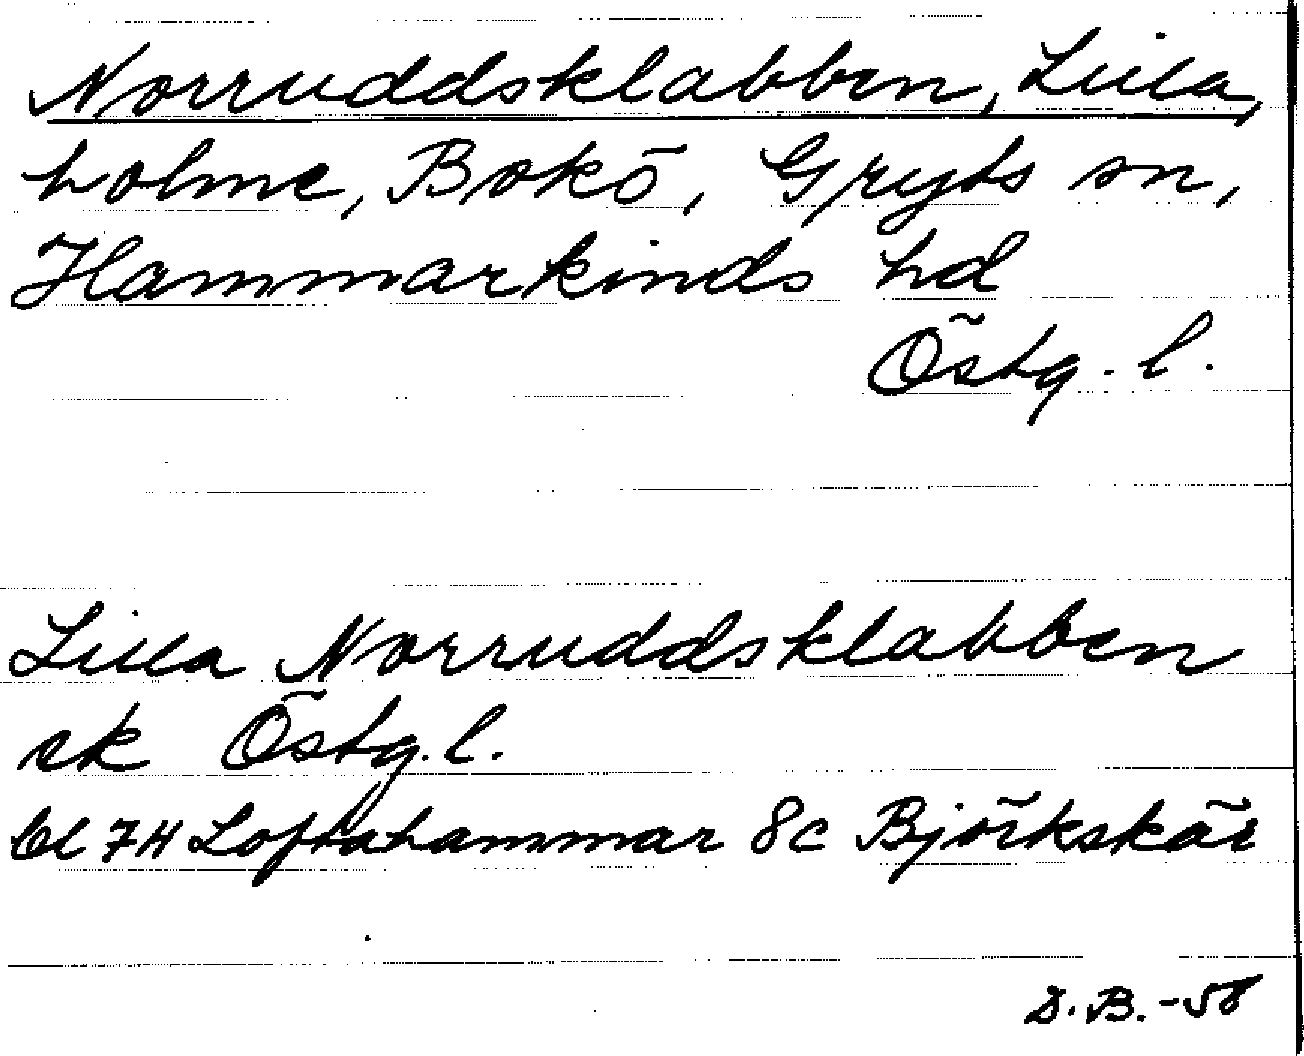 Norruddsklabben, Lilla,
holme, Bokö, Gryts sn,
Hammarkinds hd
Östg. l.
Lilla Norruddsklabben
ek Östg. l.
bl 7H Loftahammar 8c Björkskär
D. B. -58